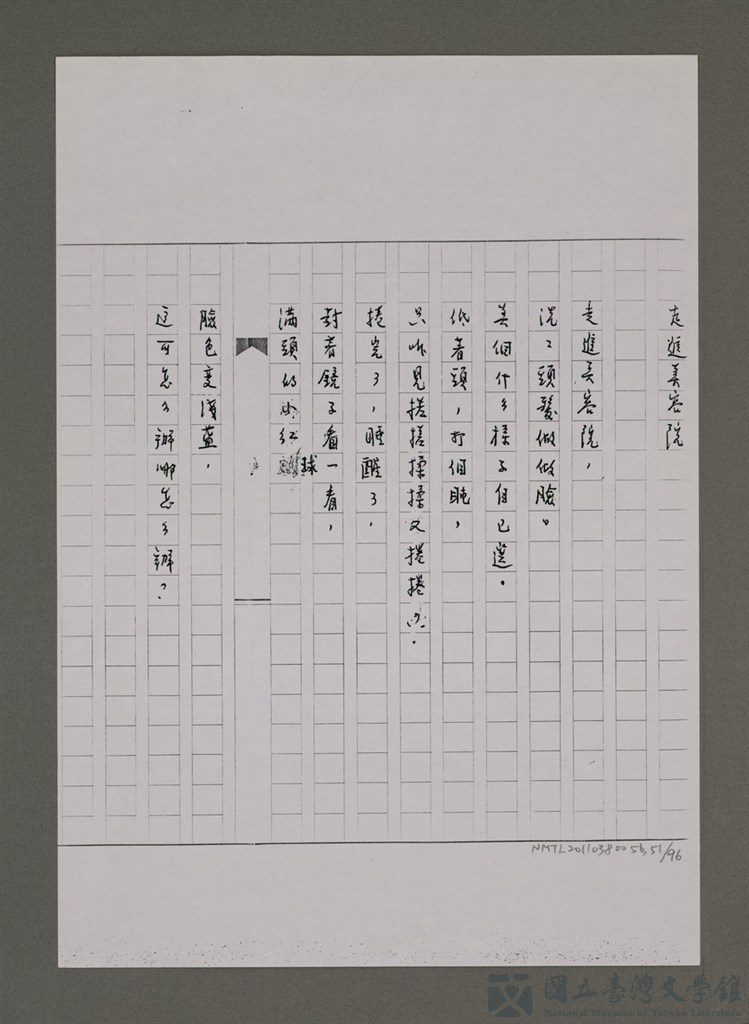 走進美容院
走進美容院，
洗々頭髮做做臉。
美個什么樣子自己選。
低着頭，打個盹，
只听見搓搓揉揉又捲捲.
捲完了，睡醒了，
對着鏡子看一看，
滿頭的小紅球
臉色变淺藍，
这可怎么辦哪怎么辦？
NMTL20110380056,51/96
國立臺灣文學館
National Museum of Taiwan Literature